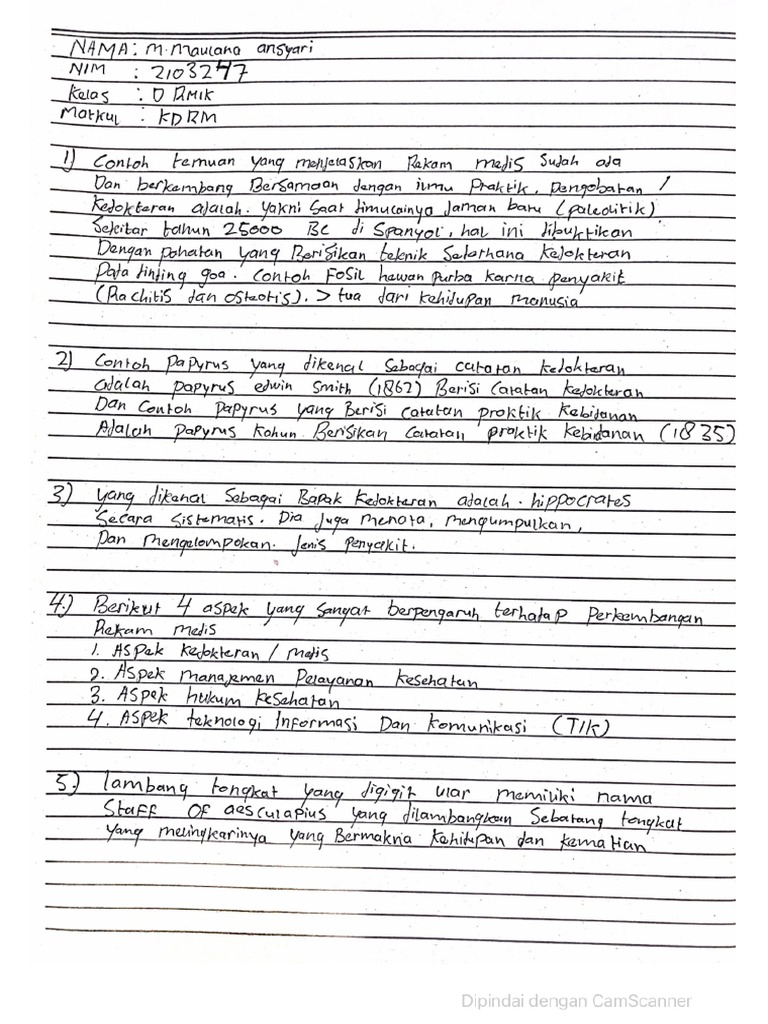 NAMA : M. Maulana ansyari
NIM : 2103247
Kelas : D RMIK
Matkul : KDRM
1) Contoh temuan yang menjelaskan Rekam medis Sudah ada
Dan berkembang Bersamaan dengan ilmu Praktik. Pengobatan /
Kedokteran adalah. yakni saat timucainya Jaman baru (paleolitik)
Sekitar tahun 25000 BC di Spanyol, hal ini dibuktikan
Dengan pahatan yang Berisikan teknik Sederhana Kedokteran
Pada dinding goa. Contoh Fosil hewan purba karna penyakit
(Rachitis dan osteotis). > tua dari kehidupan manusia
2) Contoh Papyrus yang dikenal Sebagai catatan kedokteran
adalah papyrus edwin Smith (1862) Berisi Catatan kedokteran
Dan Contoh Papyrus yang Berisi catatan praktik Kebidanan
Adalah papyrus Kahun Berisikan Catatan praktik kebidanan (1835)
3) yang dikenal Sebagai Bapak Kedokteran adalah . hippocrates
Secara Sistematis. Dia Juga menata, mengumpulkan,
Dan mengelompokan. Jenis penyakit.
4.) Berikut 4 aspek yang sangat berpengaruh terhadap perkembangan
Rekam medis
1. ASPek kedokteran / medis
2. ASPek manajemen Pelayanan kesehatan
3. ASPek hukum kesehatan
4. ASPek teknologi Informasi Dan komunikasi (TIK)
5.) lambang tongkat yang digigit ular memiliki nama
Staff OF aesculapius yang dilambangkan Sebatang tongkat
yang melingkarinya yang Bermakna Kehidupan dan kematian
Dipindai dengan CamScanner